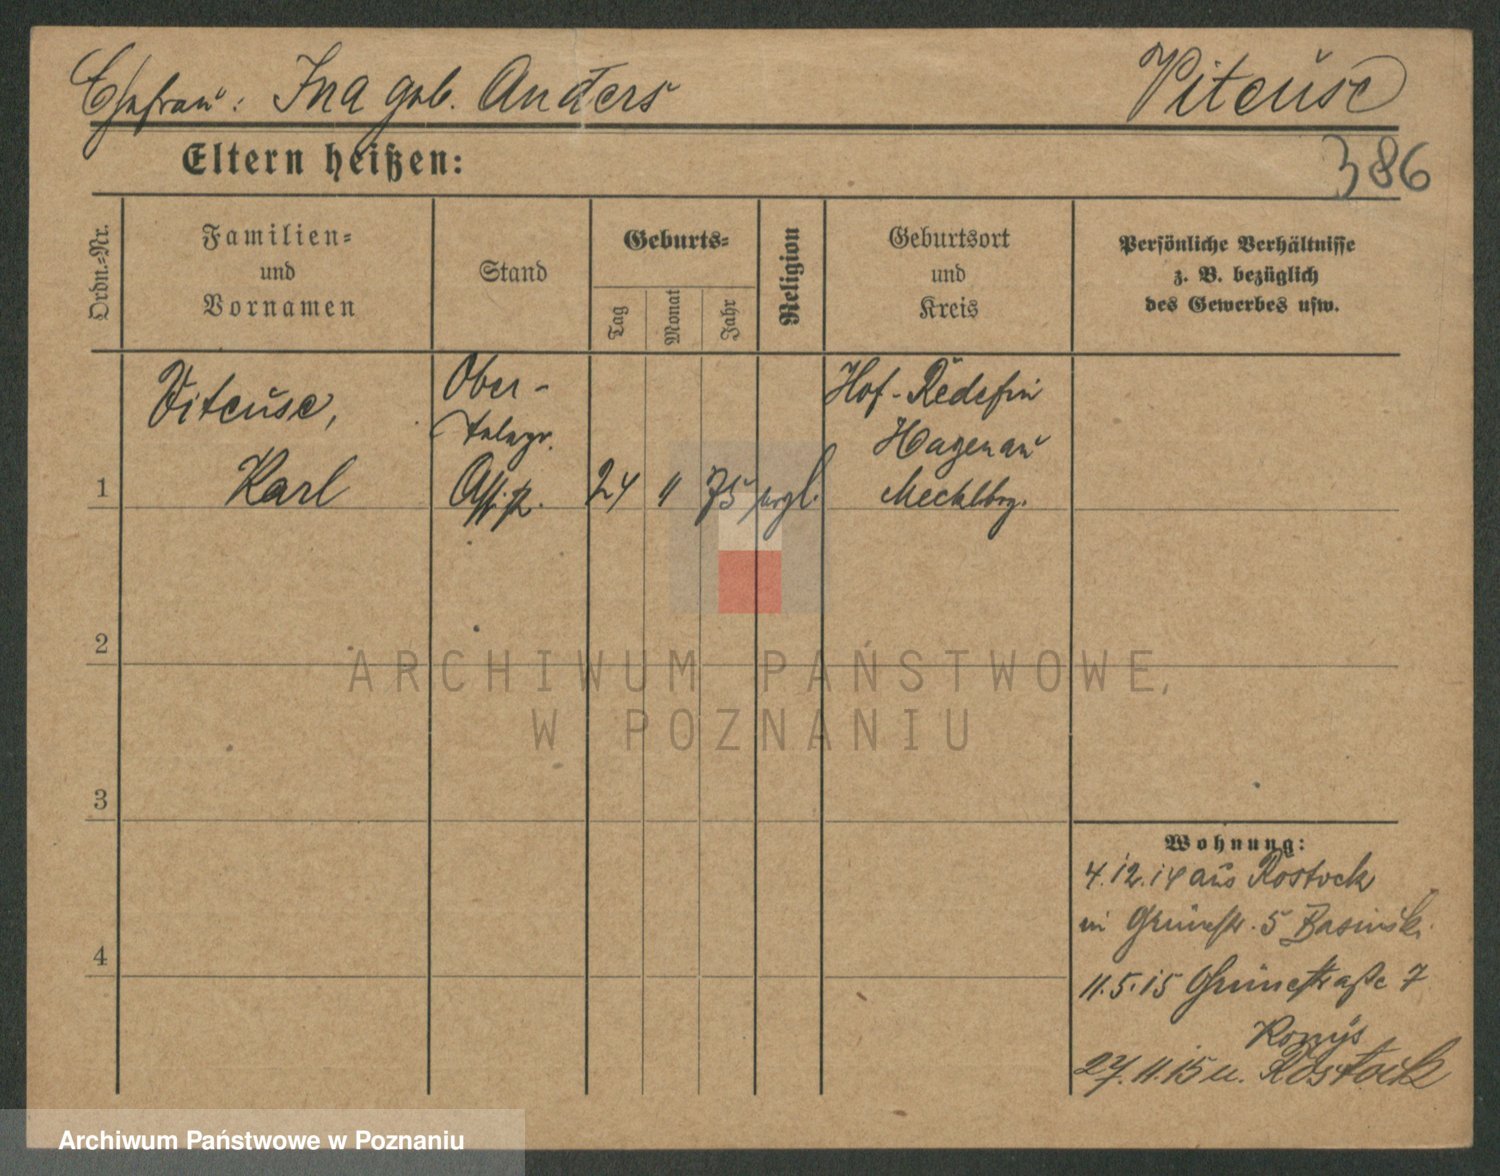 Ehefrau: Ina geb. Anders
Viteüse
Eltern heißen:
386
Ordn.-Nr.
Familien-
und
Vornamen
Stand
Geburts-
Tag
Monat
Jahr
Religion
Geburtsort
und
Kreis
Persönliche Verhältnisse
z. B. bezüglich
des Gewerbes usw.
1
Viteüse,
Karl
Ober-
Telegr.
Assist.
24
11
75
evgl.
Hof-Redefin
Hagenau
Mecklbrg.
2
3
4
Wohnung:
4.12.14 aus Rostock
in Grünestr. 5 Basinski
11.5.15 Grünestraße 7
27.11.15 n. Rostock
ARCHIWUM PAŃSTWOWE
W POZNANIU
Archiwum Państwowe w Poznaniu